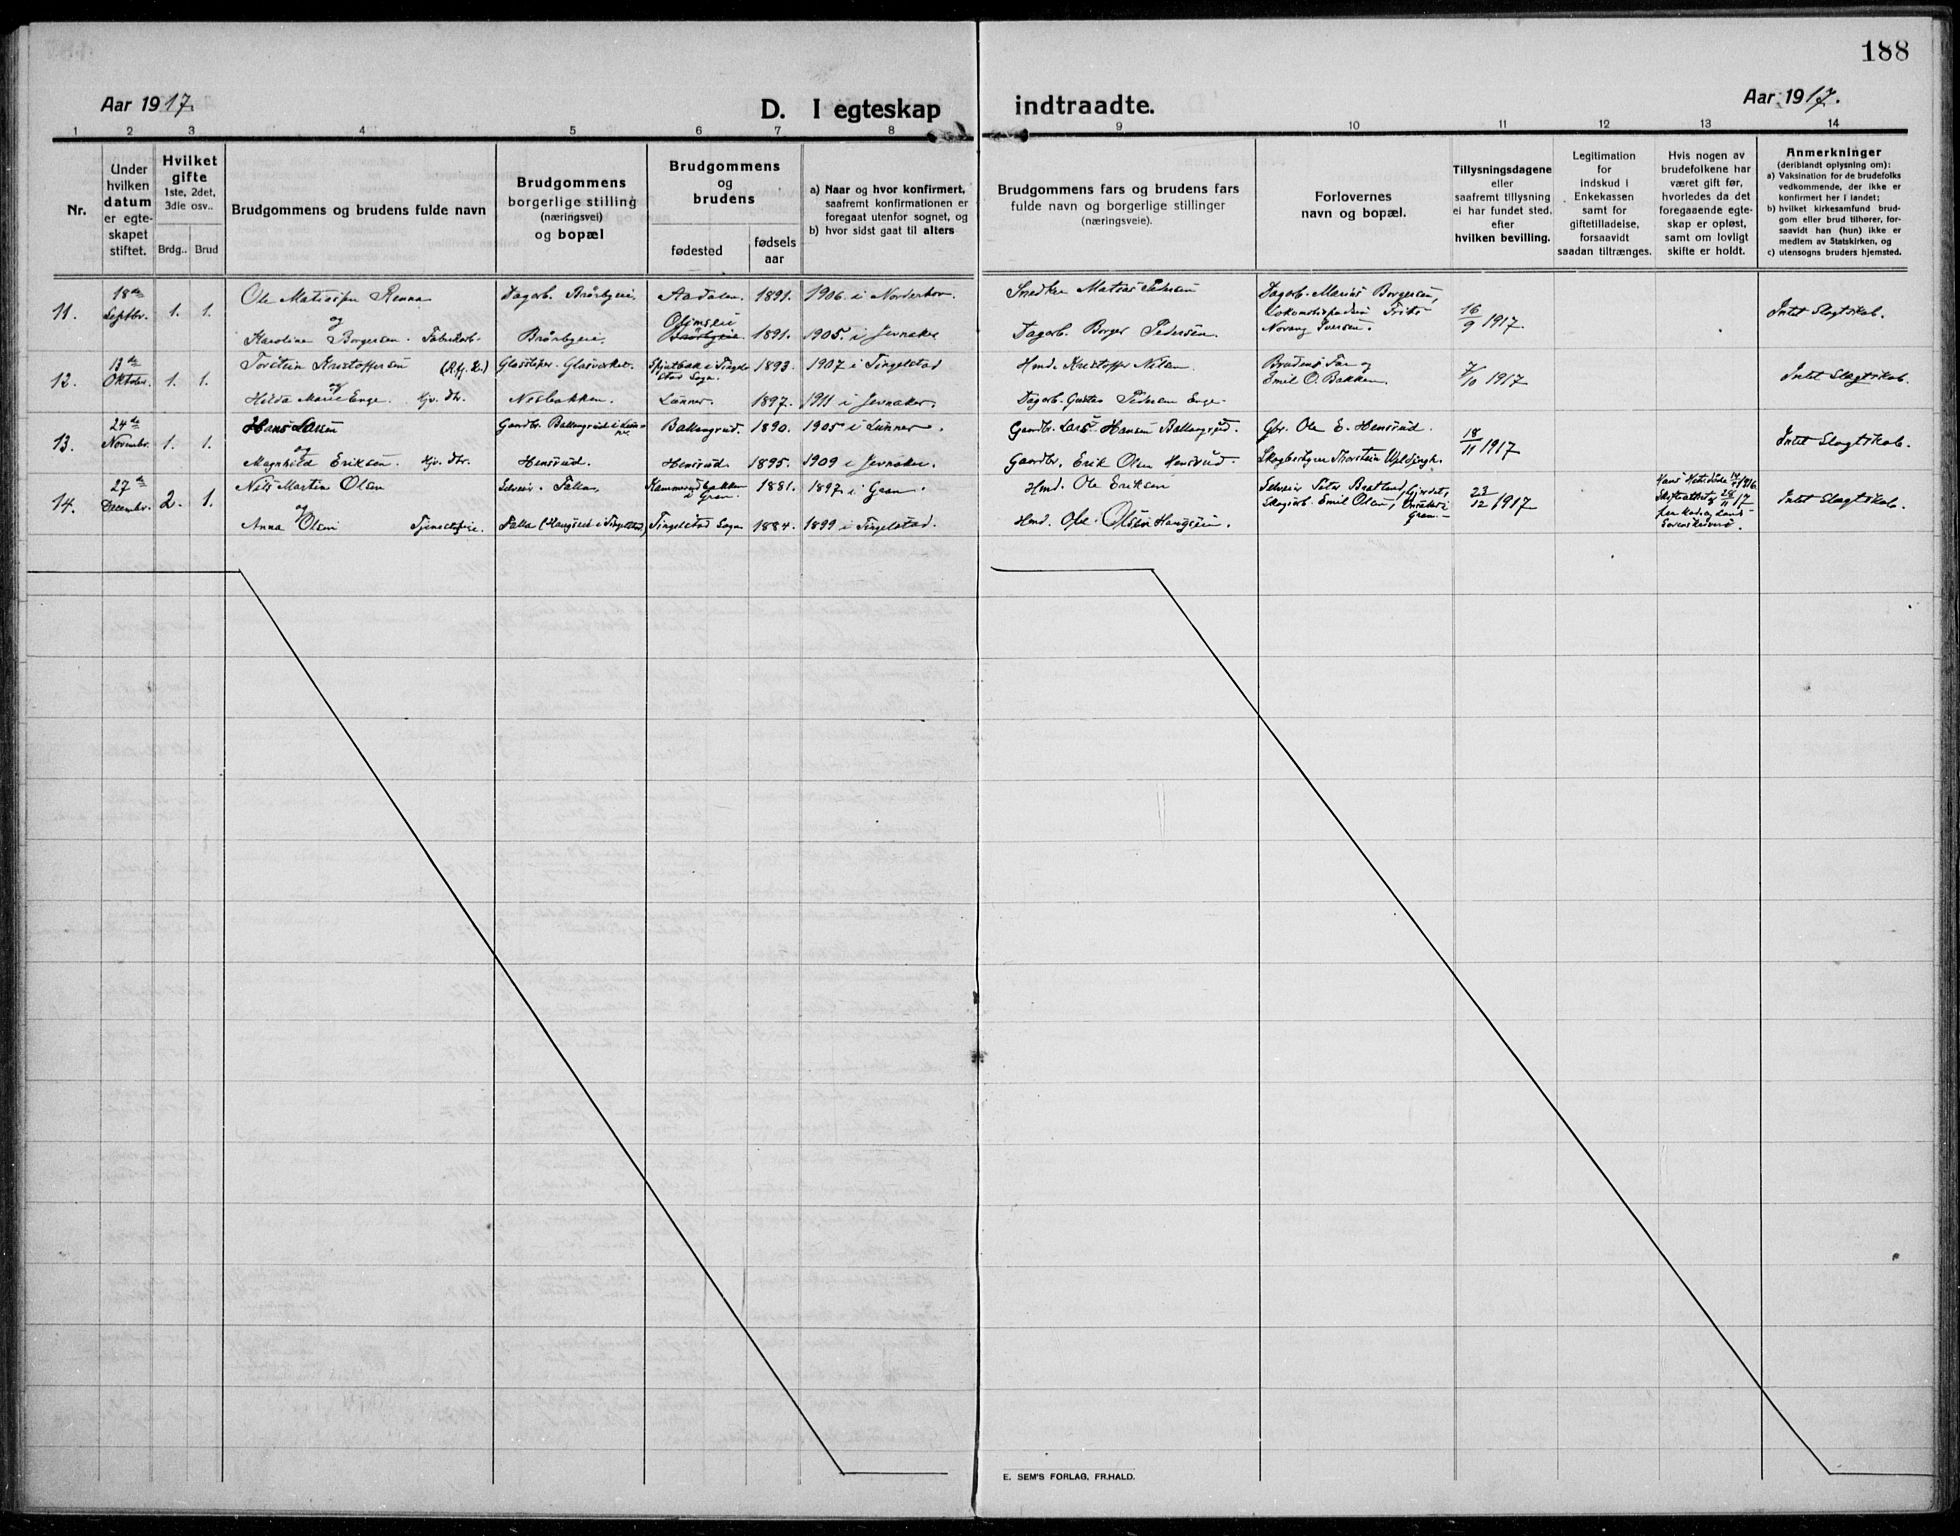 188
Aar 1917.
D. I egteskap
indtraadte.
Aar 1917.
1 2 3 4 5 6 7 8 9 10 11 12 13 14
Nr.
Under
hvilken
datum
er egte-
skapet
stiftet.
Hvilket
gifte
1ste, 2det,
3die osv..
Brdg.. Brud
Brudgommens og brudens fulde navn
Brudgommens
borgerlige stilling
(næringsvei)
og bopæl
Brudgommens
og
brudens
fødested
fødsels
aar
a) Naar og hvor konfirmert,
saafremt konfirmationen er
foregaat utenfor sognet, og
b) hvor sidst gaat til alters
Brudgommens fars og brudens fars
fulde navn og borgerlige stillinger
(næringsveie).
Forlovernes
navn og bopæl.
Tillysningsdagene
eller
saafremt tillysning
ei har fundet sted.
efter
hvilken bevilling.
Legitimation
for
indskud i
Enkekassen
samt for
giftetilladelse,
forsaavidt
saadan tiltrænges.
Hvis nogen av
brudefolkene har
været gift før,
hvorledes da det
foregaaende egte-
skap er opløst,
samt om lovligt
skifte er holdt.
Anmerkninger
(deriblandt oplysning om):
a) Vaksination for de brudefolks
vedkommende, der ikke er
konfirmert her i landet;
b) hvilket kirkesamfund brud-
gom eller brud tilhører, for-
saavidt han (hun) ikke er
medlem av Statskirken, og
c) utensogns bruders hjemsted.
11. 18de Septbr. 1. 1.
Ole Matissen Renna Dagarb. Brørbyeie. Aadalen. 1891. 1906 i Norderhov. Snedker Matias Pedersen Dagarb. Marius Borgersen,
og
Karoline Borgersen. Fabrikarb. Brørbyeie. 1891. 1905 i Jevnaker Dagarb. Borger Pedersen Iversen. 16/9 1917 Intet Slegtskab.
12. 13de Oktober. 1. 1.
Torstein Kristoffersen Glassliper. Glasverket. 1893. 1907 i Tingelstad Hmd. Kristoffer Nilsen Brudens Far og
og
Hilda Marie Enge. Nesbakken. Lunner. 1897. 1911 i Jevnaker. Dagarb. Gustav Pedersen Enge. Emil O. Bakken. 7/10 1917 Intet Slegtskab.
13. 24de Novembr. 1. 1.
Hans Larsen Gaardbr. Ballangrud i Lunner Ballangrud. 1890. 1905 i Lunner. Gaardbr. Lars Hansen Ballangrud. Gbr. Ole E. Hensrud.
og
Magnhild Eriksen. Hensrud. Hensrud. 1895. 1909 i Jevnaker. Gaardbr. Erik Olsen Hensrud. Skogbestyrer Thorstein 18/11 1917 Intet Slegtskab.
14. 27de Decembr. 2. 1.
Nils Martin Olsen Falla, i Gran. 1881. 1897 i Gran. Hmd. Ole Eriksen Peter
og
Anna Olsen Tjenestepige. Falla Tingelstad Sogn 1884. 1899 i Tingelstad. Hmd. Ole Olsen Emil Olsen, Gran. 23/12 1917 Intet Slegtskab.
E. SEM'S FORLAG, FR.HALD.